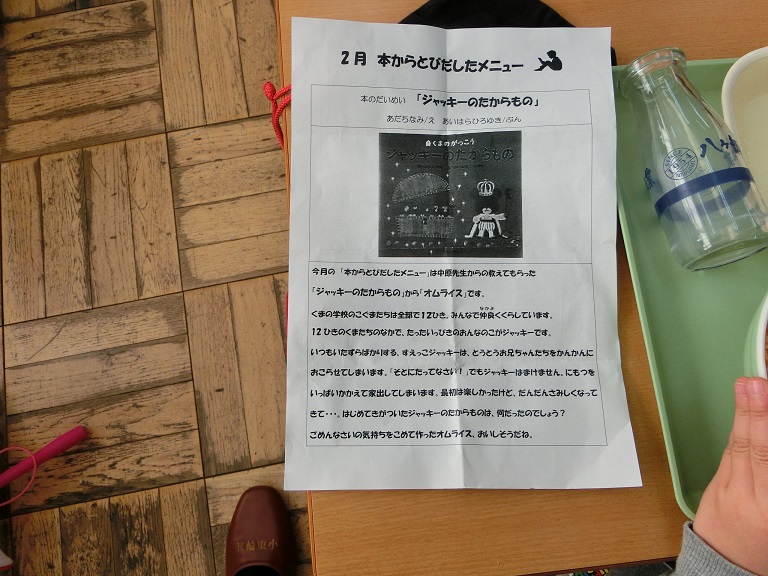 2月 本からとびだしたメニュー
本のだいめい 「ジャッキーのたからもの」
あだちなみ/え あいはらひろゆき/ぶん
くまのがっこう
ジャッキーのたからもの
今月の「本からとびだしたメニュー」は中原先生からの教えてもらった
「ジャッキーのたからもの」から「オムライス」です。
くまの学校のこぐまたちは全部で12ひき。みんなで仲良くくらしています。
なかよ
12ひきのくまたちのなかで、たったいっぴきのおんなのこがジャッキーです。
いつもいたずらばかりする、すえっこジャッキーは、とうとうお兄ちゃんたちをかんかんに
おこらせてしまいます。「そとにたってなさい!」でもジャッキーはまけません。にもつを
いっぱいかかえて家出してしまいます。最初は楽しかったけど、だんだんさみしくなって
きて・・・。はじめてきがついたジャッキーのたからものは、何だったのでしょう?
ごめんなさいの気持ちをこめて作ったオムライス、おいしそうだね。
八ヶ